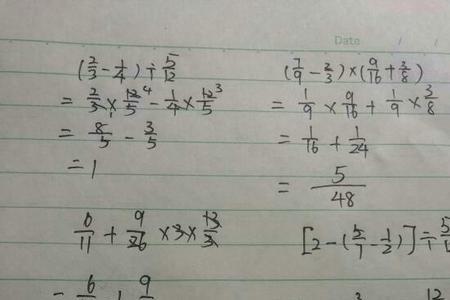 Date / /
(2/3 - 1/4) ÷ 5/12
= 2/3 × 12/5 4 - 1/4 × 12/5 3
= 8/5 - 3/5
= 1
(7/9 - 2/3) × (9/16 + 3/8)
= 1/9 × 9/16 + 1/9 × 3/8
= 1/16 + 1/24
= 5/48
6/11 + 9/26 × 3 × 13/3
[2 - (5/7 - 1/2)] ÷
= 6 + 9